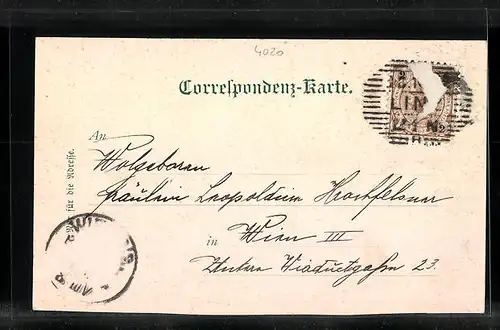 4020
Correspondenz-Karte.
An
Wolgeboren
Fräulein Leopoldine
in Wien III
Untere Viaductgasse 23.
für die Adresse.